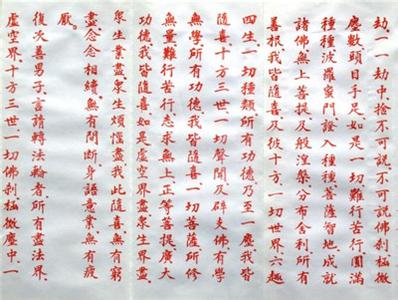 劫、一一劫中、捨不可說不可說佛剎極微
塵數頭目手足、如是一切難行苦行、圓滿
種種波羅蜜門、證入種種菩薩智地、成就
諸佛無上菩提、及般涅槃、分布舍利、所有
善根、我皆隨喜、及彼十方一切世界、六趣
四生、一切種類所有功德、乃至一塵、我皆
隨喜、十方三世一切聲聞、及辟支佛、有學
無學、所有功德、我皆隨喜、一切菩薩所修
無量難行苦行、志求無上正等菩提、廣大
功德、我皆隨喜、如是虛空界盡、眾生界盡、
眾生業盡、眾生煩惱盡、我此隨喜、無有窮
盡、念念相續、無有間斷、身語意業、無有疲
厭。
復次善男子、言請轉法輪者、所有盡法界、
虛空界、十方三世一切佛剎極微塵中、一